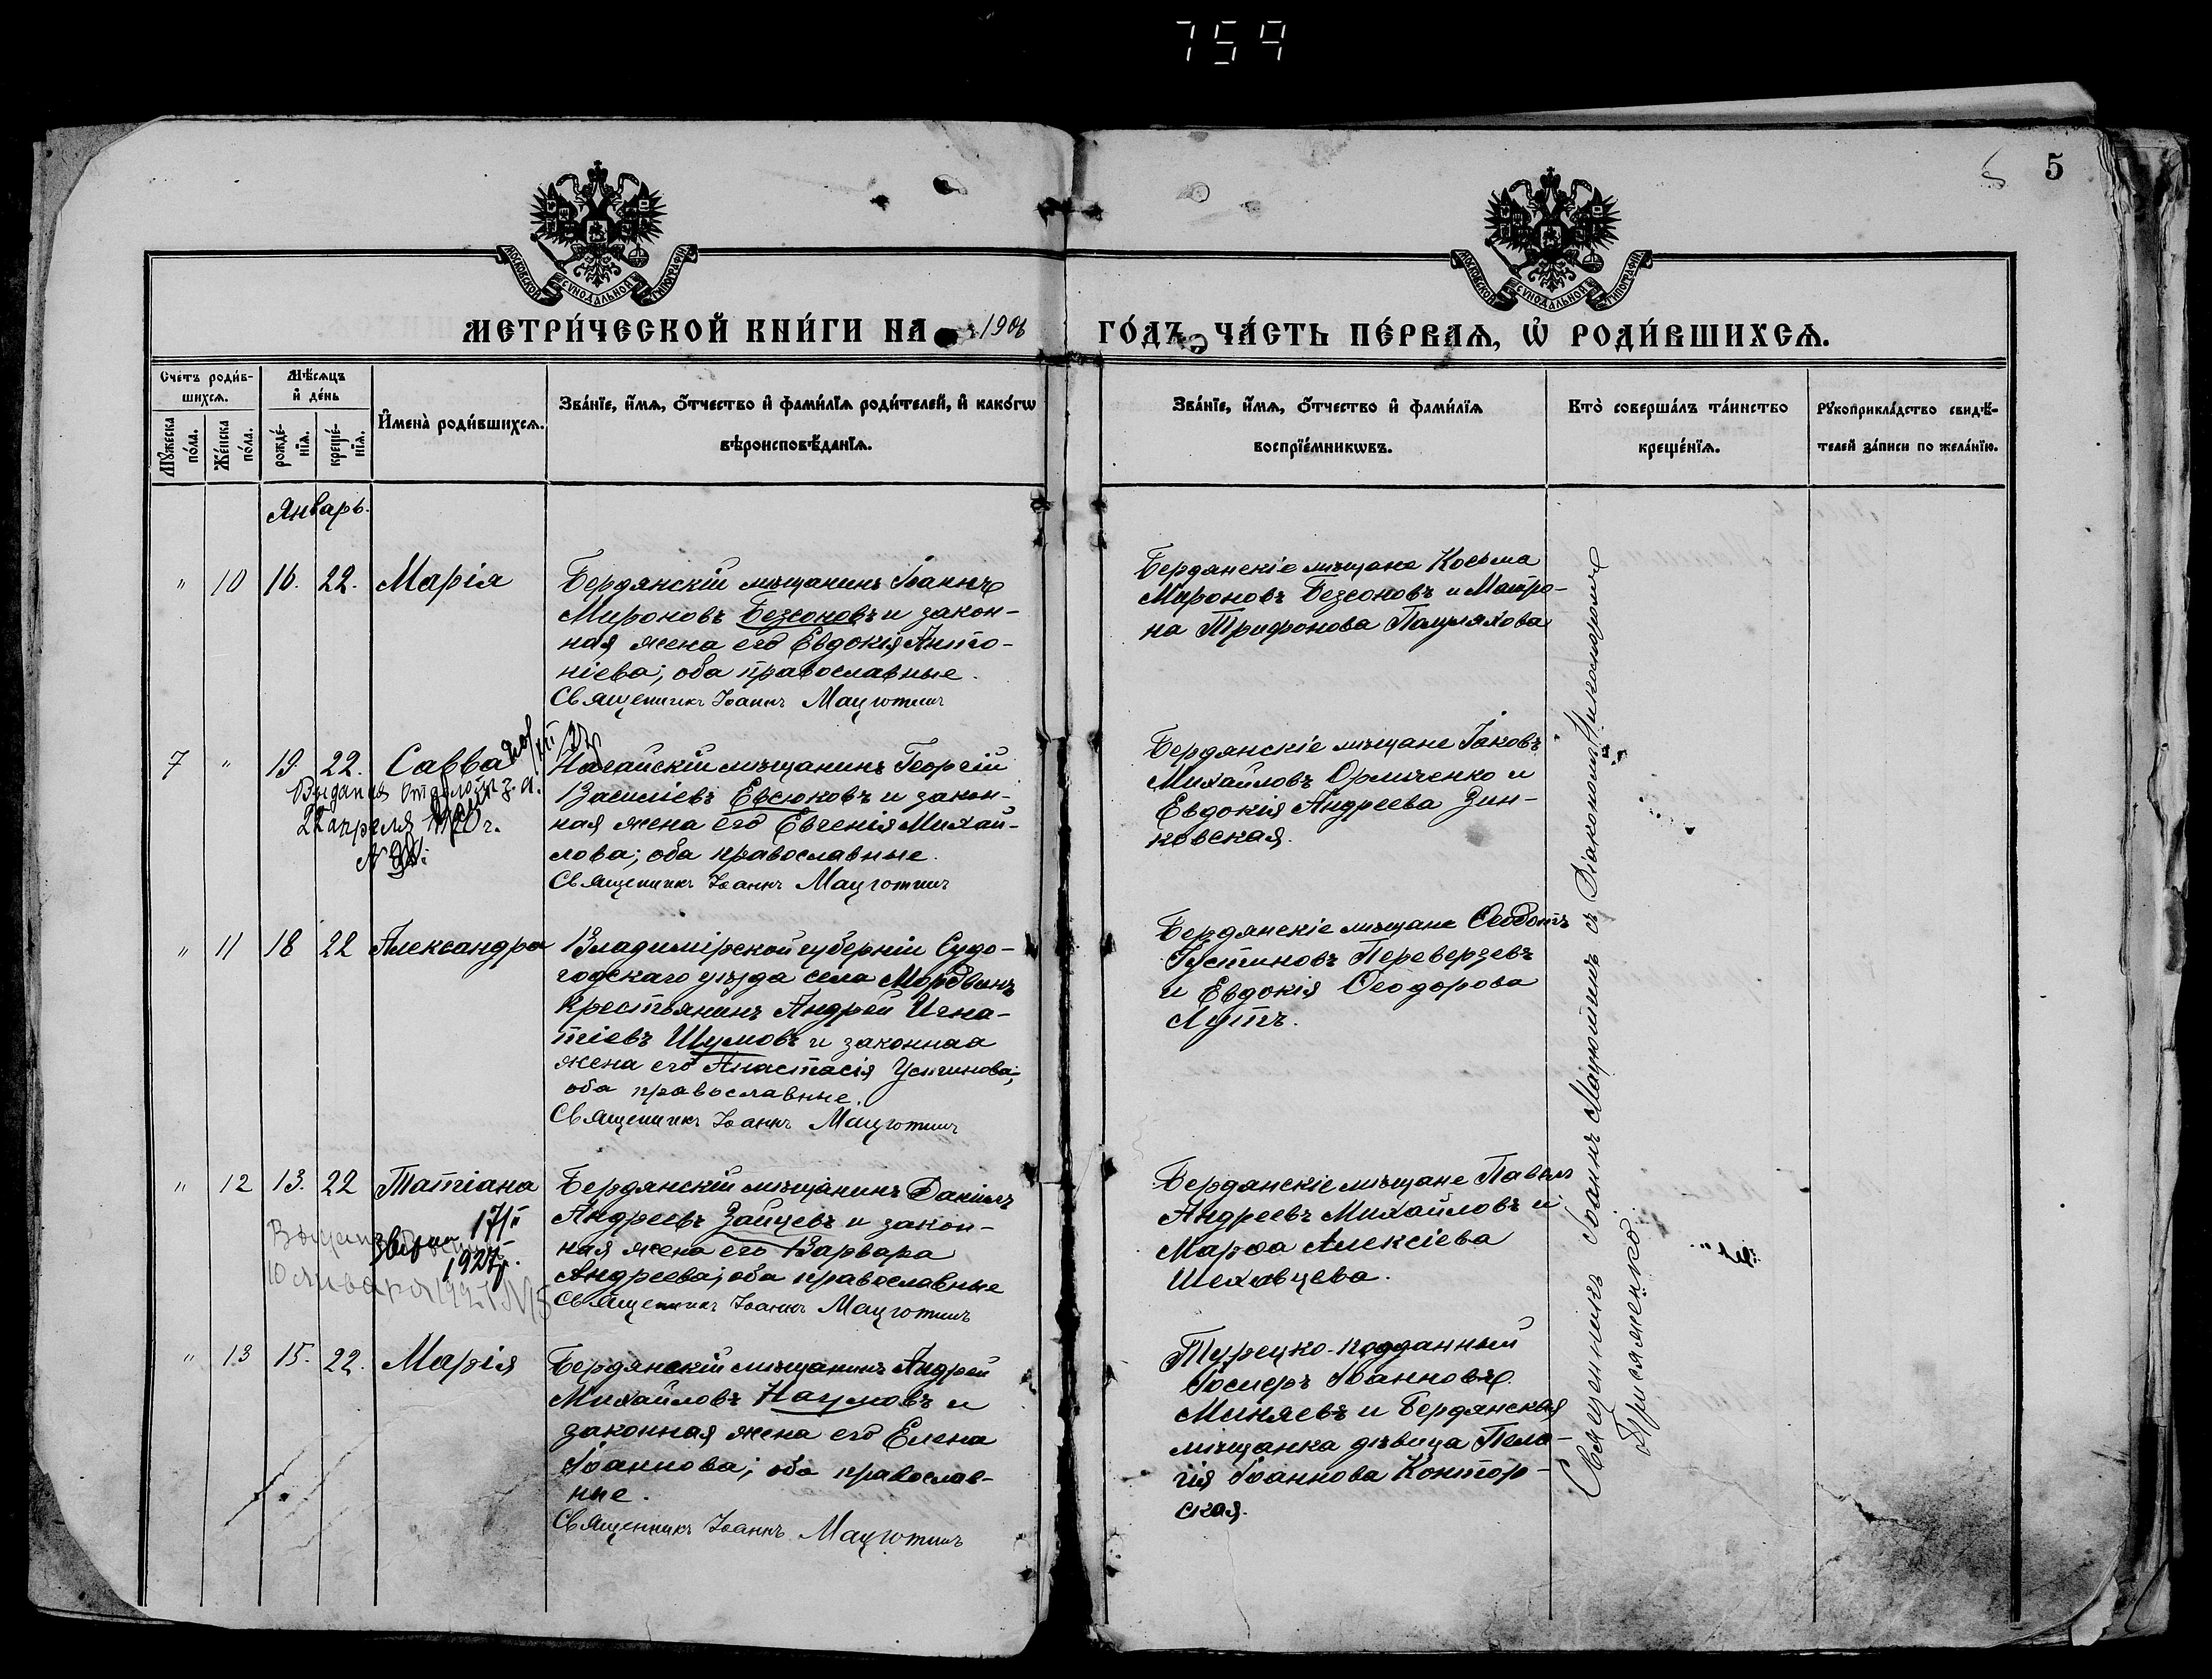 759
5
МОСКОВСКОЙ СѴНОДАЛЬНОЙ ТИПОГРАФІИ
МОСКОВСКОЙ СѴНОДАЛЬНОЙ ТИПОГРАФІИ
МЕТРИ́ЧЕСКОЙ КНИ́ГИ НА 1908
ГО́ДЪ, ЧА́СТЬ ПЕ́РВАѦ, Ѽ РОДИ́ВШИХСѦ.
Сче́тъ роди́в-
шихсѧ.
Мꙋ́жеска по́ла.
Же́нска по́ла.
Мѣ́сѧцъ
и҆ де́нь
рожде́-
нїѧ.
креще́-
нїѧ.
И҆мена̀ роди́вшихсѧ.
Зва́нїе, и҆́мѧ, ѻ҆́тчество и҆ фами́лїѧ роди́телей, и҆ како́гѡ
вѣроисповѣ́данїѧ.
Зва́нїе, и҆́мѧ, ѻ҆́тчество и҆ фами́лїѧ
воспрїе́мникѡвъ.
Кто̀ соверша́лъ та́инство
креще́нїѧ.
Рꙋкоприкла́дство свидѣ́-
телей за́писи по жела́нїю.
Январь.
" 10 16. 22. Марія
Бердянскій мѣщанинъ Іоаннъ
Мироновъ Безсоновъ и закон-
ная жена его Евдокія Анто-
ніева; оба православные.
Священникъ Іоаннъ Мацютинъ
Бердянскіе мѣщане Косьма
Мироновъ Безсоновъ и Матро-
на Трифонова
7 " 19. 22. Савва
22 апреля
Ногайскій мѣщанинъ Георгій
Василіевъ Евсюковъ и закон-
ная жена его Евгенія Михай-
лова; оба православные.
Священникъ Іоаннъ Мацютинъ
Бердянскіе мѣщане Іаковъ
Михайловъ Ормиченко и
Евдокія Андреева Зин-
ковская.
" 11 18 22 Александра
Владимірской губерніи Судо-
годскаго уѣзда села Мордвинъ
крестьянинъ Андрей Игна-
тіевъ Шумовъ и законная
жена его Анастасія Устинова;
оба православные.
Священникъ Іоаннъ Мацютинъ
Бердянскіе мѣщане Ѳеодотъ
Густиновъ Переверзевъ
и Евдокія Ѳеодорова
Лутъ.
" 12 13. 22 Татіана
17/II
1927г.
10 января 1927
Бердянскій мѣщанинъ Даніилъ
Андреевъ Зайцевъ и закон-
ная жена его Варвара
Андреева; оба православные
Священникъ Іоаннъ Мацютинъ
Бердянскіе мѣщане Павелъ
Андреевъ Михайловъ и
Марѳа Алексіева
Шеховцева.
" 13 15. 22. Марія
Бердянскій мѣщанинъ Андрей
Михайловъ Наумовъ и
законная жена его Елена
Іоаннова; оба православ-
ные.
Священникъ Іоаннъ Мацютинъ
Турецко-подданный
Іосифъ Іоанновъ
Миняевъ и Бердянская
мѣщанка дѣвица Пела-
гія Іоаннова Контор-
ская.
Священникъ Іоаннъ Мацютинъ съ Діакономъ